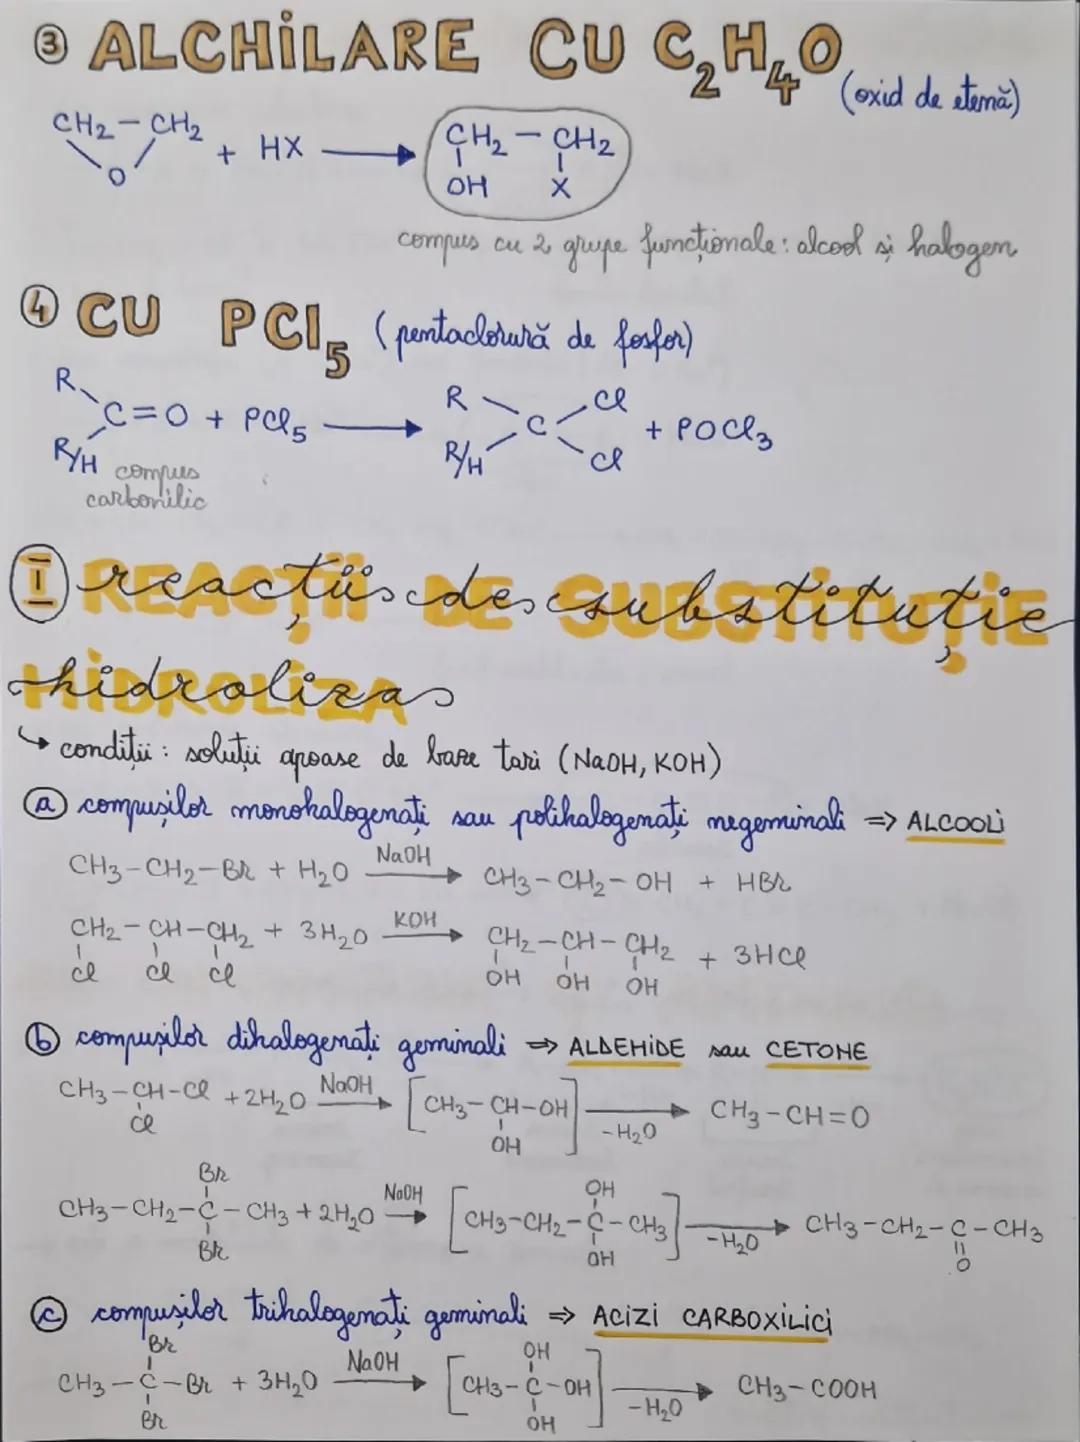 ③ ALCHILARE CU C₂H₄O (oxid de etenă)
CH₂ — CH₂ + HX ⟶ CH₂ — CH₂
O OH X
compus cu 2 grupe funcționale: alcool și halogen
④ CU PCl₅ (pentaclorură de fosfor)
R R Cl
C=O + PCl₅ ⟶ C + POCl₃
R/H R/H Cl
compus
carbonilic
Ⅰ reacții de substituție
REACȚII DE SUBSTITUȚIE
hidroliza
HIDROLIZA
↳ condiții: soluții apoase de baze tari (NaOH, KOH)
ⓐ compușilor monohalogenați sau polihalogenați negeminali ⇒ ALCOOLI
NaOH
CH₃-CH₂-Br + H₂O ⟶ CH₃-CH₂-OH + HBr
KOH
CH₂-CH-CH₂ + 3H₂O ⟶ CH₂-CH-CH₂ + 3HCl
Cl Cl Cl OH OH OH
ⓑ compușilor dihalogenați geminali ⇒ ALDEHIDE sau CETONE
NaOH
CH₃-CH-Cl + 2H₂O ⟶ [CH₃-CH-OH] ⟶ CH₃-CH=O
Cl OH -H₂O
Br NaOH OH
CH₃-CH₂-C-CH₃ + 2H₂O ⟶ [CH₃-CH₂-C-CH₃] ⟶ CH₃-CH₂-C-CH₃
Br OH -H₂O O
ⓒ compușilor trihalogenați geminali ⇒ ACIZI CARBOXILICI
Br NaOH OH
CH₃-C-Br + 3H₂O ⟶ [CH₃-C-OH] ⟶ CH₃-COOH
Br OH -H₂O